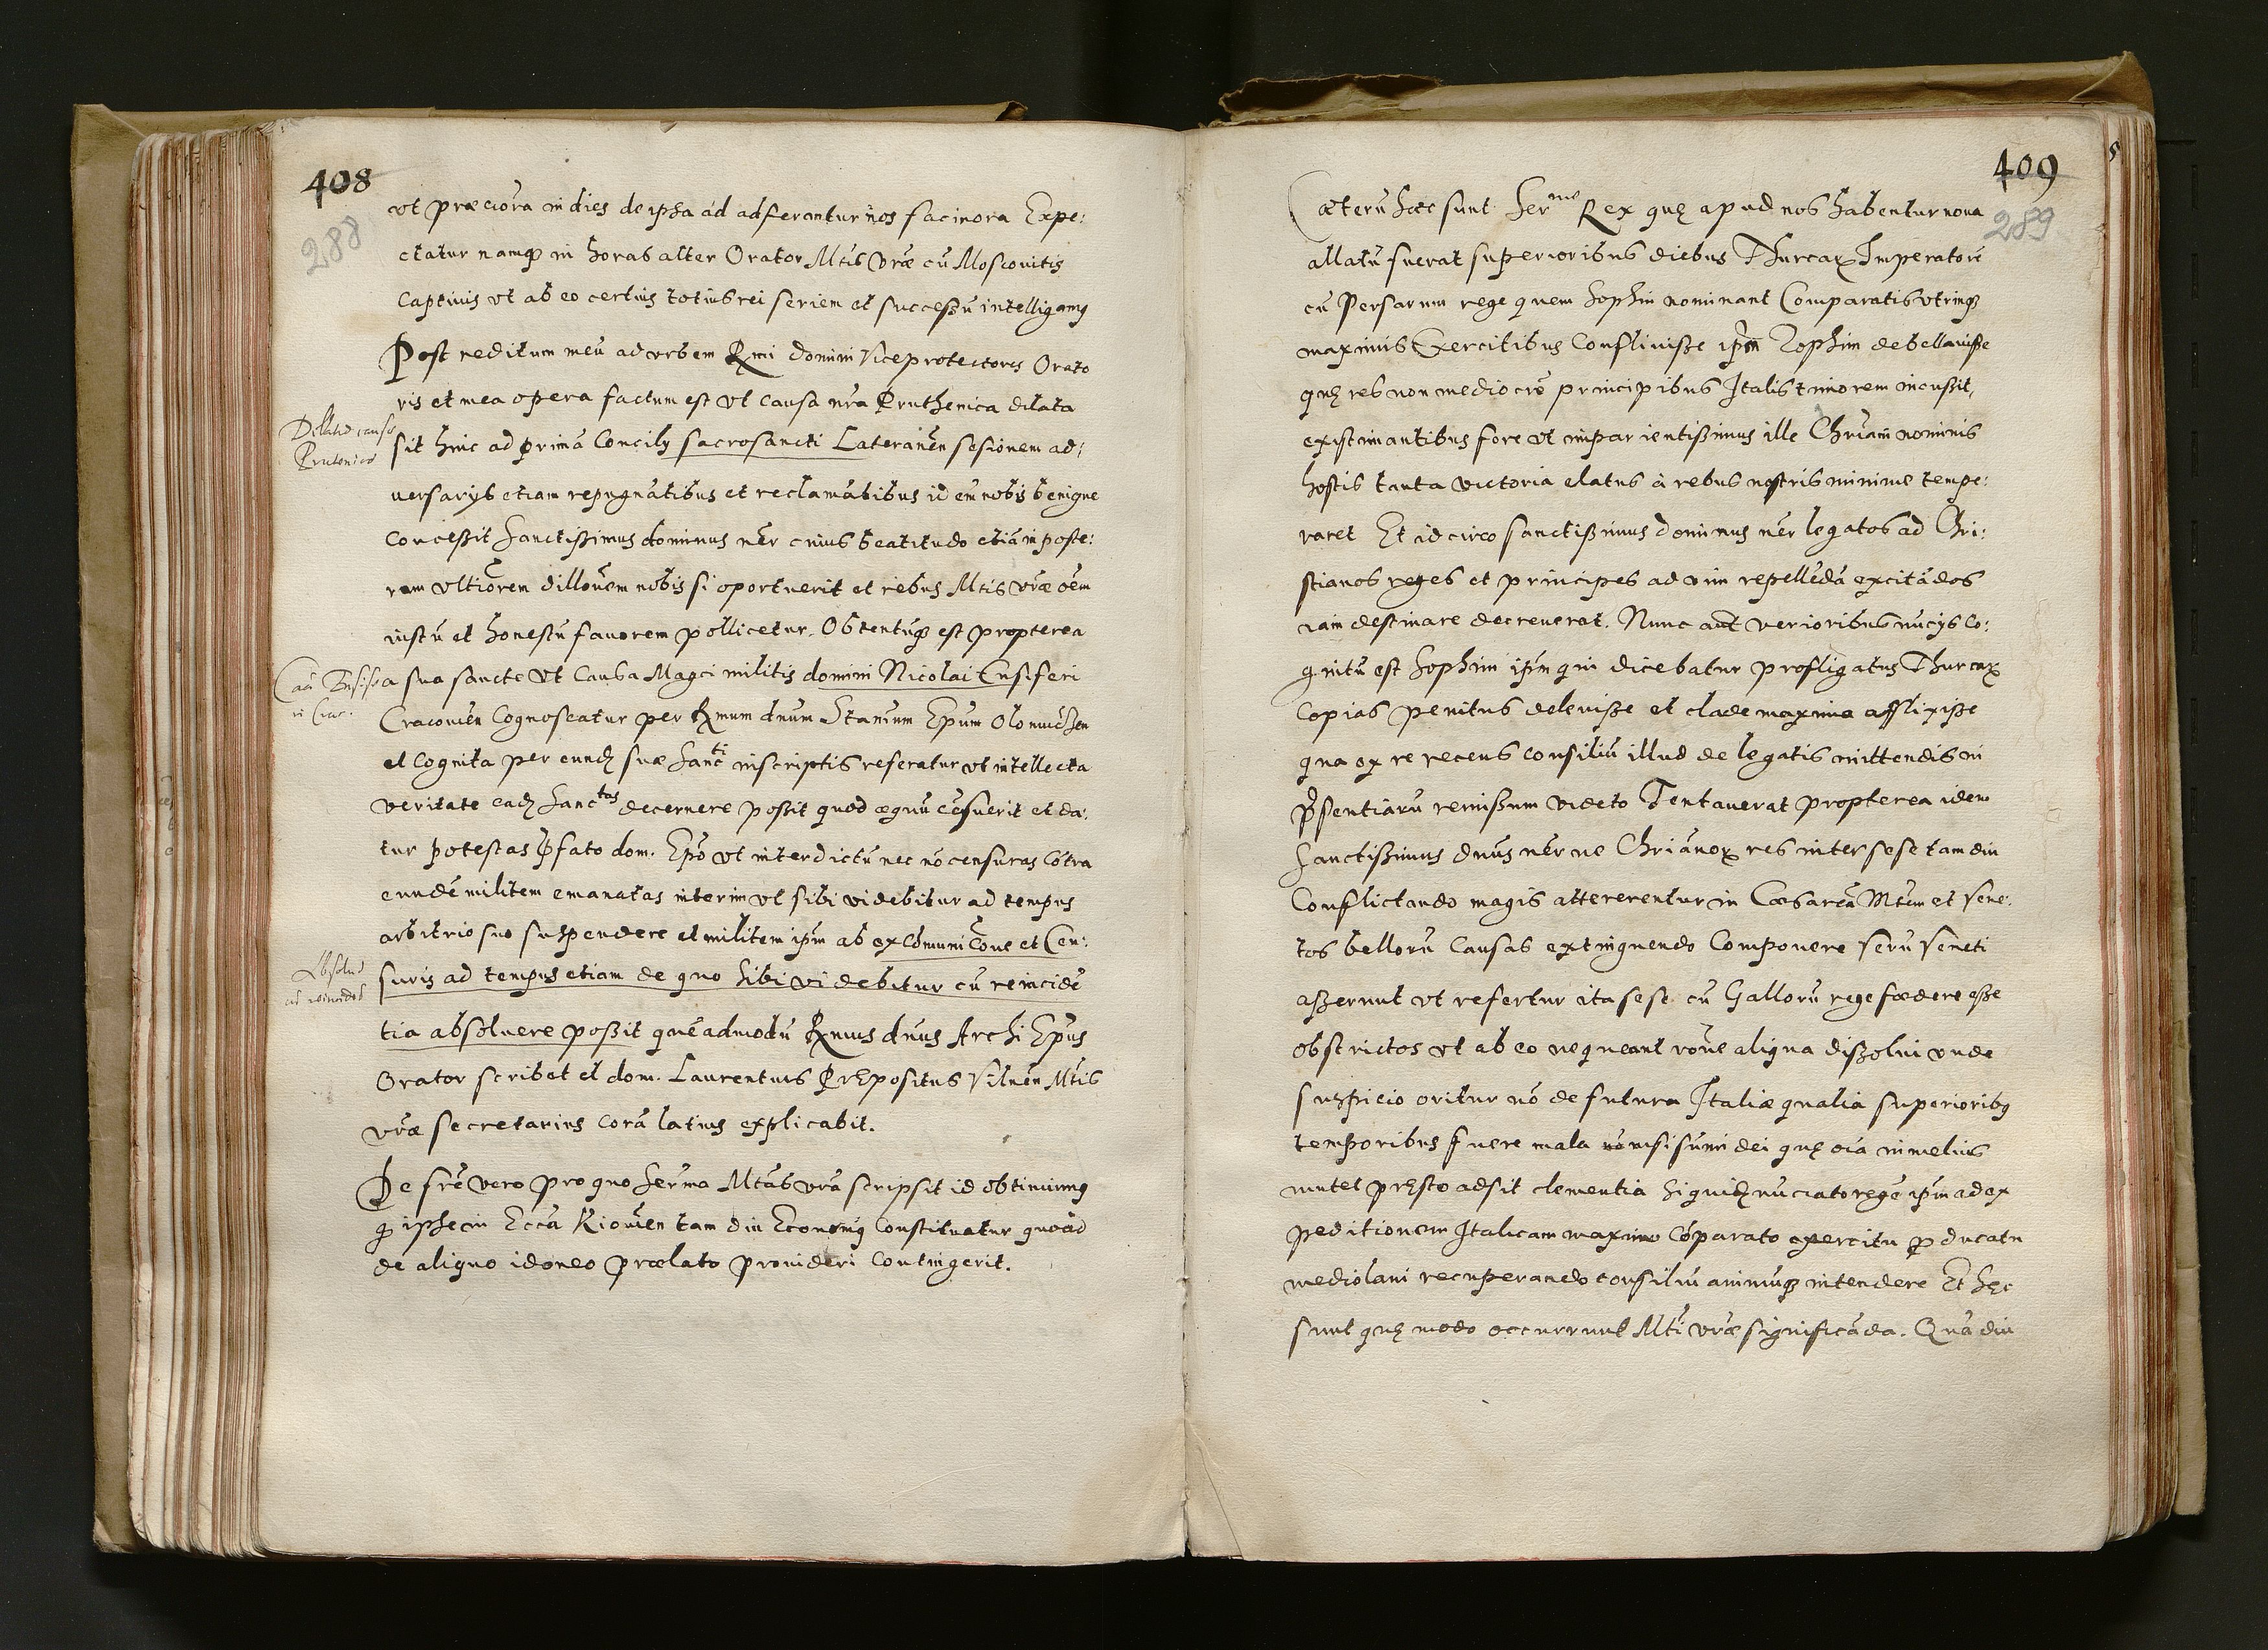 408
288
vt præciora in dies de ipsa ad adferantur nos facinora Expe:
ctatur namq in horas alter Orator Mtis vræ cū Moscouitis
captiuis vt ab eo certius totius rei seriem et successū intelligamus
Post reditum meū ad vrbem Rmi domini Viceprotectoris Orato
ris et mea opera factum est vt causa nra Pruthenica dilata
Dilatio causæ
Prutenicæ
sit hinc ad primā Concilij sacrosancti Lateranēn sesionem ad:
uersarijs etiam repugnātibus et reclamātibus id em nobis benigne
concessit Sanctissimus dominus nēr cuius beatitudo etiā in poste:
rum vltiorem dillōnem nobis si oportuerit et rebus Mtis vræ oēm
iustū et honestū fauorem pollicetur. Obtentūq est propterea
Cā Ensife
ri Crac.
a sua sancte vt causa Magci militis domini Nicolai Ensiferi
Cracouiēn cognoscatur per Rmum dnum Stanium Epum Olomuczen
et cognita per eundē suæ Sancti in scriptis referatur vt intellecta
veritate eadē Sanctas decernere possit quod æquū cēsuerit et da:
tur potestas p̄fato dom. Epō vt interdictū nec nō censuras cōtra
eundē militem emanatas interim vt sibi videbitur ad tempus
arbitrio suo suspendere et militem ipm ab excōmunicōne et Cen:
Absolui
ad reincidē
suris ad tempus etiam de quo sibi videbitur cū reincidē
tia absoluere possit quēadmodū Rmus dnus Archi Epus
Orator scribet et dom. Laurentius Prępositus Vilnēn Mtis
vræ secretarius corā latius explicabit.
De frē vero pro quo serma Mtas vra scripsit id obtinuimus
q ipse in Eccā Kiouien tam diu Economus constituatur quoad
de aliquo idoneo prælato prouideri contingerit.
409
289
Cæterū hæc sunt Serme Rex quę apud nos habentur noua
allatū fuerat superioribus diebus Thurcar Imperatorē
cū Persarum rege quem Sophin nominant comparatis vtrinq
maximis Exercitibus conflixisse ipm Zophim debellauisse
quę res non mediocrē principibus Italis timorem incussit,
existimantibus fore vt impacientissimus ille Chriani nominis
hostis tanta victoria elatus à rebus nostris minime tempe:
raret Et idcirco sanctissimus dominus nēr legatos ad Chri:
stianos reges et principes ad vim repellēdā excitādos
iam destinare decreuerat. Nunc aut verioribus nūcijs co:
gnitū est Sophim ipm qui dicebatur profligatus Thurcar
copias penitus deleuisse et clade maxima afflixisse
qua ex re recens consiliū illud de legatis mittendis in
p̄sentiarū remissum videto Tentauerat propterea idem
Sanctissimus dnus nēr ne Chriānor res inter sese tam diu
conflictando magis attererentur in Cæsareā Mtem et Vene:
tos bellorū causas extinguendo componere Verū Veneti
asserunt vt refertur ita sese cū Gallorū rege foedere esse
obstrictos vt ab eo nequeant rōne aliqua dissolui vnde
suspicio oritur nō de futura Italiæ qualia superioribus
temporibus fuere mala nō nisi sumi dei quę oīa in melius
mutet pręsto adsit clementia siquidē nūciato regē ipm ad ex
peditionem Italicam maximo cōparato exercitu p ducatu
mediolani recuperando consiliū animūq intendere Et hęc
sunt quę modo occurrunt Mti vræ significāda. Quā diu